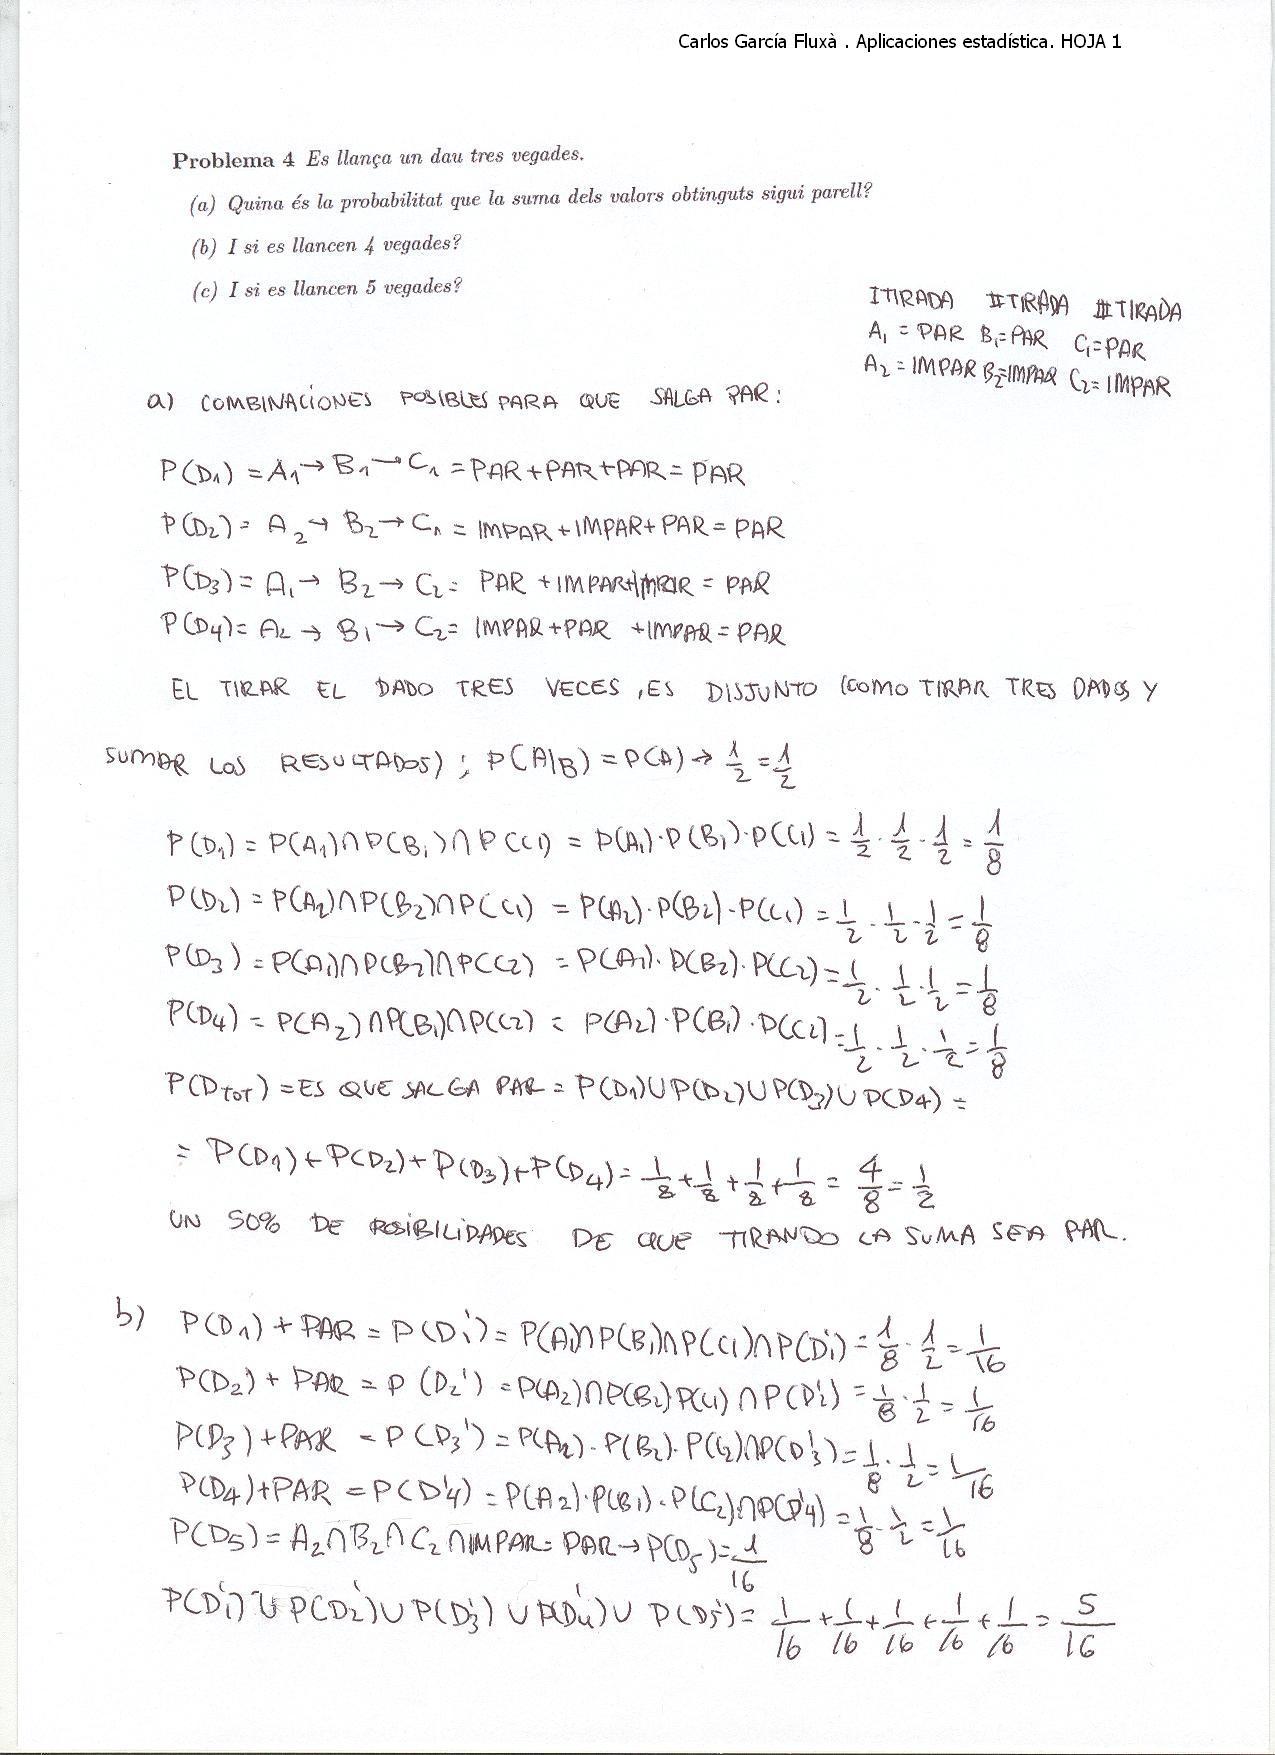 Carlos García Fluxà . Aplicaciones estadística. HOJA 1
Problema 4 Es llança un dau tres vegades.
(a) Quina és la probabilitat que la suma dels valors obtinguts sigui parell?
(b) I si es llancen 4 vegades?
(c) I si es llancen 5 vegades?
I TIRADA II TIRADA III TIRADA
A₁ = PAR B₁=PAR C₁=PAR
A₂ = IMPAR B₂=IMPAR C₂= IMPAR
a) COMBINACIONES POSIBLES PARA QUE SALGA PAR:
P(D₁) = A₁→ B₁→ C₁ = PAR+PAR+PAR= PAR
P(D₂)= A₂→ B₂→ C₁ = IMPAR+IMPAR+ PAR= PAR
P(D₃)= A₁→ B₂→ C₂= PAR +IMPAR+IMPAR = PAR
P(D₄)= A₂ → B₁→ C₂= IMPAR+PAR +IMPAR=PAR
EL TIRAR EL DADO TRES VECES, ES DISJUNTO (COMO TIRAR TRES DADOS Y
SUMAR LOS RESULTADOS) ; P(A|B) = P(A) → 1/2 = 1/2
P(D₁) = P(A₁)∩P(B₁)∩P(C₁) = P(A₁)·P(B₁)·P(C₁) = 1/2 · 1/2 · 1/2 = 1/8
P(D₂) = P(A₂)∩P(B₂)∩P(C₁) = P(A₂)·P(B₂)·P(C₁) = 1/2 · 1/2 · 1/2 = 1/8
P(D₃) = P(A₁)∩P(B₂)∩P(C₂) = P(A₁)·P(B₂)·P(C₂) = 1/2 · 1/2 · 1/2 = 1/8
P(D₄) = P(A₂)∩P(B₁)∩P(C₂) = P(A₂)·P(B₁)·P(C₂) = 1/2 · 1/2 · 1/2 = 1/8
P(D_TOT) = ES QUE SALGA PAR = P(D₁)∪P(D₂)∪P(D₃)∪P(D₄) =
= P(D₁)+P(D₂)+P(D₃)+P(D₄) = 1/8 + 1/8 + 1/8 + 1/8 = 4/8 = 1/2
UN 50% DE POSIBILIDADES DE QUE TIRANDO LA SUMA SEA PAR.
b) P(D₁) + PAR = P(D₁') = P(A₁)∩P(B₁)∩P(C₁)∩P(D₁') = 1/8 · 1/2 = 1/16
P(D₂) + PAR = P(D₂') = P(A₂)∩P(B₂)P(C₁)∩P(D₂') = 1/8 · 1/2 = 1/16
P(D₃)+PAR = P(D₃') = P(A₂)·P(B₂)·P(C₂)∩P(D₃') = 1/8 · 1/2 = 1/16
P(D₄)+PAR = P(D₄') = P(A₂)·P(B₁)·P(C₂)∩P(D₄') = 1/8 · 1/2 = 1/16
P(D₅) = A₂∩B₂∩C₂∩IMPAR= PAR → P(D₅)= 1/16
P(D₁')∪P(D₂')∪P(D₃')∪P(D₄')∪ P(D₅')= 1/16 + 1/16 + 1/16 + 1/16 + 1/16 = 5/16